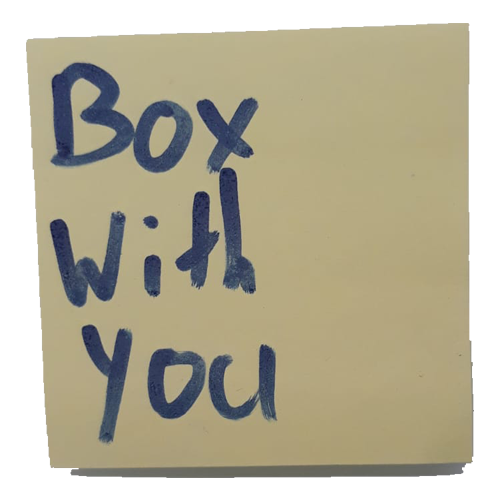 Box
With
You